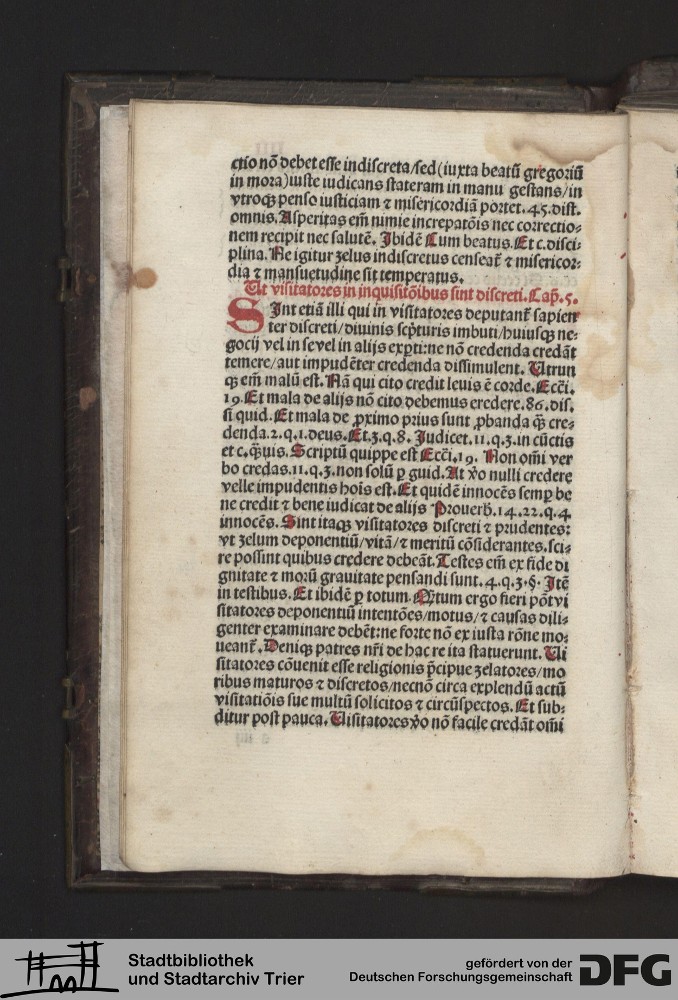 ctio nō debet esse indiscreta/sed (iuxta beatū gregoriū
in mora) iuste iudicans stateram in manu gestans/in
vtroqꝫ penso iusticiam ⁊ misericordiā portet. 45. dist.
omnis. Asperitas em̄ nimie increpatōis nec correctio-
nem recipit nec salutē. Ibidē Cum beatus. Et c. disci-
plina. Ne igitur zelus indiscretus censeat᷑ ⁊ misericor-
dia ⁊ mansuetudine sit temperatus.
Ut visitatores in inquisitōibus sint discreti. Cap̄. 5.
SInt etiā illi qui in visitatores deputant᷑ sapien
ter discreti/diuinis scp̄turis imbuti/huiusqꝫ ne-
gocij vel in se vel in alijs exꝑti: ne nō credenda credāt
temere/aut impudēter credenda dissimulent. Utrun
qꝫ em̄ malū est. Nā qui cito credit leuis ē corde. Ecc̄i.
19. Et mala de alijs nō cito debemus credere. 86. dis.
si quid. Et mala de ꝓximo prius sunt ꝓbanda qꝫ̄ cre-
denda. 2. q. 1. deus. Et. 3. q. 8. Judicet. 11. q. 3. in cūctis
et c. qꝫ̄uis. Scriptū quippe est Ecc̄i. 19. Non om̄i ver
bo credas. 11. q. 3. non solū ꝑ guid. At v̄o nulli credere
velle impudentis hoīs est. Et quidē innocēs semꝑ be
ne credit ⁊ bene iudicat de alijs Prouerb̄. 14. 22. q. 4.
innocēs. Sint itaqꝫ visitatores discreti ⁊ prudentes:
vt zelum deponentiū/vitā/⁊ meritū cōsiderantes. sci-
re possint quibus credere debeāt. Testes em̄ ex fide di
gnitate ⁊ morū grauitate pensandi sunt. 4. q. 3. §. Itē
in testibus. Et ibidē ꝑ totum. Qn̄tum ergo fieri pōt vi
sitatores deponentiū intentōes/motus/⁊ causas dili-
genter examinare debēt: ne forte nō ex iusta rōne mo-
ueant᷑. Deniqꝫ patres nr̄i de hac re ita statuerunt. Ui
sitatores cōuenit esse religionis p̄cipue zelatores/mo
ribus maturos ⁊ discretos/necnō circa explendū actū
visitatiōis sue multū solicitos ⁊ circūspectos. Et sub-
ditur post pauca. Uisitatores v̄o nō facile credāt om̄i
Stadtbibliothek
und Stadtarchiv Trier
gefördert von der
Deutschen Forschungsgemeinschaft
DFG